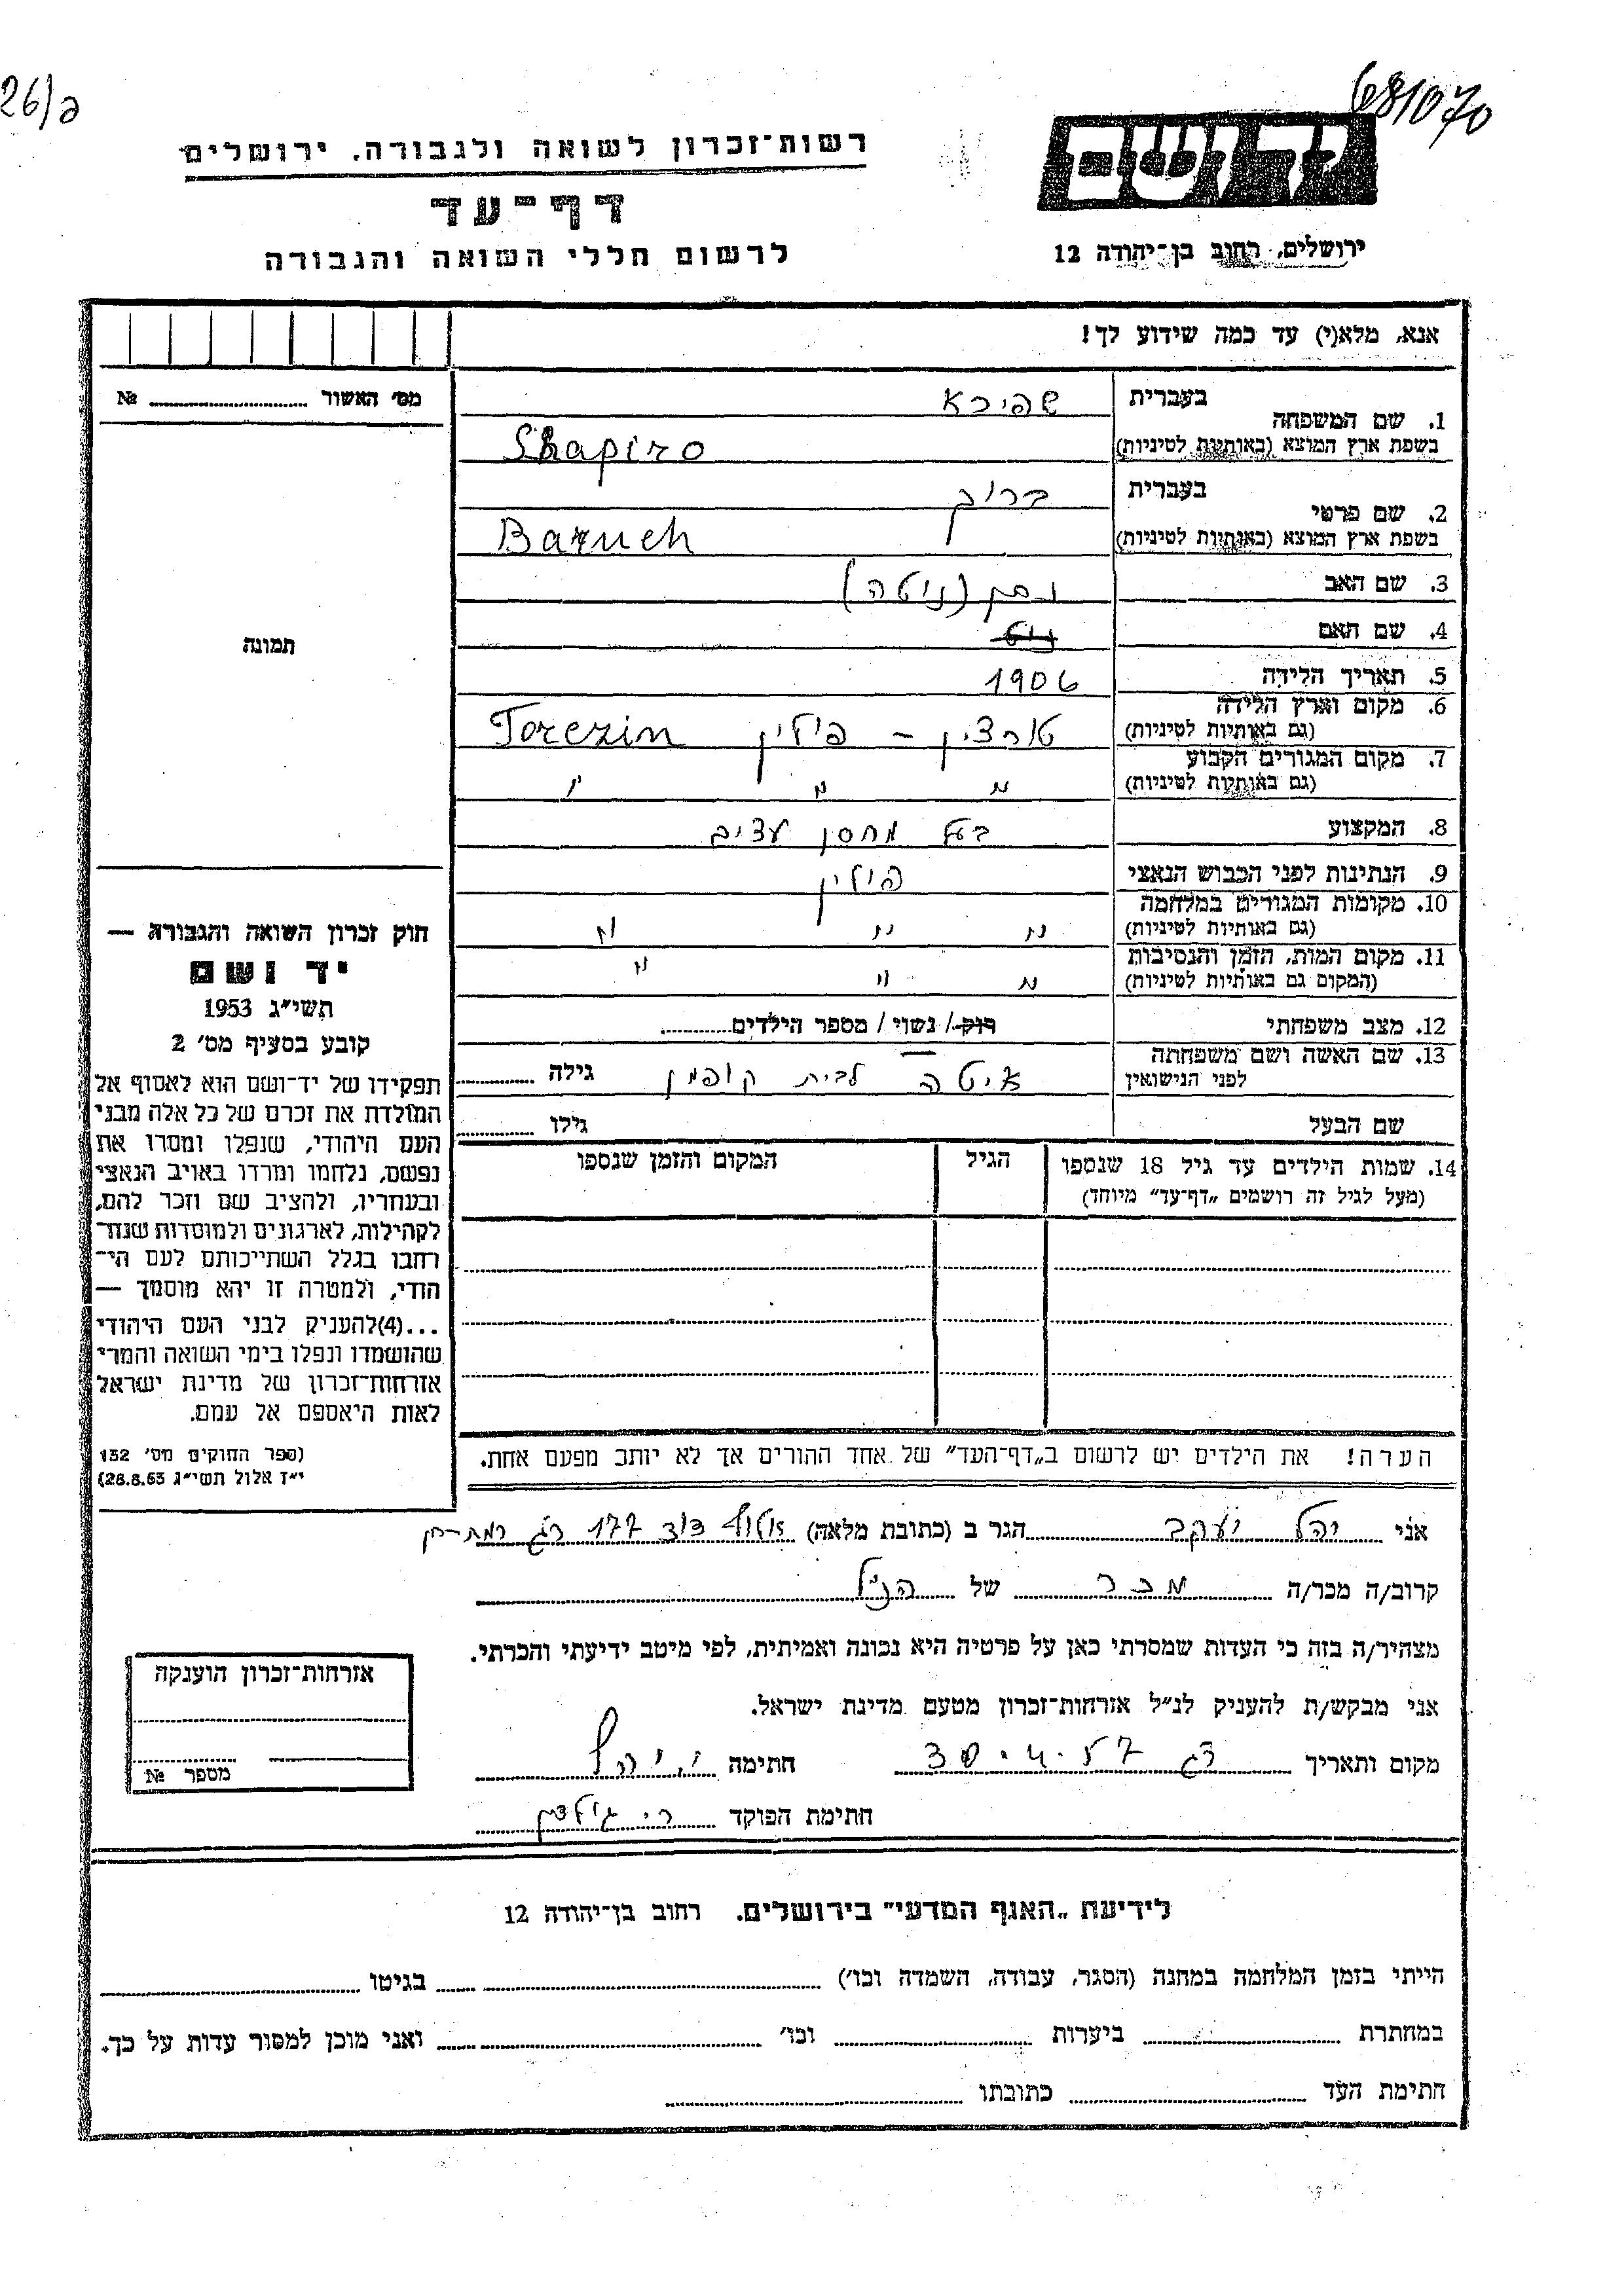 26/פ
681070
רשות-זכרון לשואה ולגבורה, ירושלים
דף-עד
לרשום חללי השואה והגבורה
יד ושם
ירושלים, רחוב בן-יהודה 12
אנא, מלא(י) עד כמה שידוע לך!
מס׳ האשור № 
תמונה
1. שם המשפחה בעברית שפירא
בשפת ארץ המוצא (באותיות לטיניות) Shapiro
2. שם פרטי בעברית ברוך
בשפת ארץ המוצא (באותיות לטיניות) Baruch
3. שם האב נתן (ניטה)
4. שם האם
5. תאריך הלידה 1906
6. מקום וארץ הלידה (גם באותיות לטיניות) טורצין – פולין Torczin
7. מקום המגורים הקבוע (גם באותיות לטיניות) " " "
8. המקצוע בעל מחסן עצים
9. הנתינות לפני הכבוש הנאצי פולין
10. מקומות המגורים במלחמה (גם באותיות לטיניות) " " "
11. מקום המות, הזמן והנסיבות (המקום גם באותיות לטיניות) " " "
12. מצב משפחתי רוק / נשוי / מספר הילדים
13. שם האשה ושם משפחתה לפני הנישואין איטה לבית קופמן גילה
שם הבעל גילו
14. שמות הילדים עד גיל 18 שנספו הגיל המקום והזמן שנספו
(מעל לגיל זה רושמים „דף-עד״ מיוחד)
הערה! את הילדים יש לרשום ב„דף-העד״ של אחד ההורים אך לא יותר מפעם אחת.
חוק זכרון השואה והגבורה —
יד ושם
תשי״ג 1953
קובע בסעיף מס׳ 2
תפקידו של יד-ושם הוא לאסוף אל
המולדת את זכרם של כל אלה מבני
העם היהודי, שנפלו ומסרו את
נפשם, נלחמו ומרדו באויב הנאצי
ובעוזריו, ולהציב שם וזכר להם,
לקהילות, לארגונים ולמוסדות שנח-
רבו בגלל השתייכותם לעם הי-
הודי, ולמטרה זו יהא מוסמך —
...(4)להעניק לבני העם היהודי
שהושמדו ונפלו בימי השואה והמרי
אזרחות-זכרון של מדינת ישראל
לאות היאספם אל עמם.
(ספר החוקים מס׳ 132
י״ז אלול תשי״ג 28.8.53)
אני יהל יעקב הגר ב (כתובת מלאה) אלוף דוד 177 רג רמת-חן
קרוב/ה מכר/ה מכר של הנ״ל
מצהיר/ה בזה כי העדות שמסרתי כאן על פרטיה היא נכונה ואמיתית, לפי מיטב ידיעתי והכרתי.
אני מבקש/ת להעניק לנ״ל אזרחות-זכרון מטעם מדינת ישראל.
מקום ותאריך רג 30.4.57 חתימה י. יהל
חתימת הפוקד
אזרחות-זכרון הוענקה
מספר №
לידיעת „האגף המדעי״ בירושלים. רחוב בן-יהודה 12
הייתי בזמן המלחמה במחנה (הסגר, עבודה, השמדה וכו׳) בגיטו
במחתרת ביערות וכו׳ ואני מוכן למסור עדות על כך.
חתימת העד כתובתו